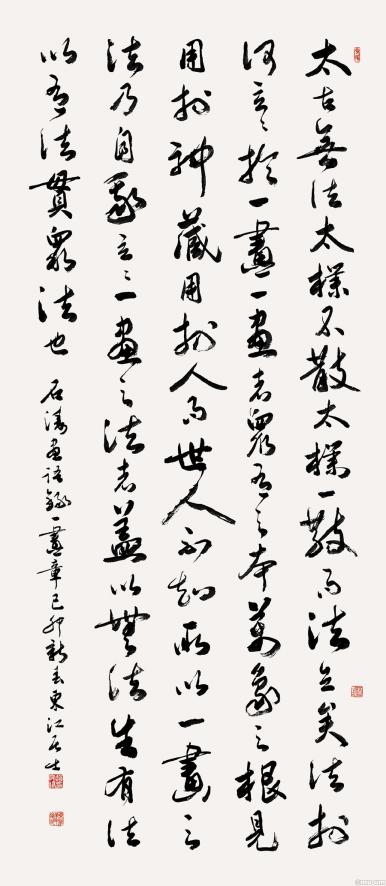 太古無法太樸不散太樸一散而法立矣法於
何立〻於一畫一畫者衆有之本萬象之根見
用於神藏用於人而世人不知所以一畫之
法乃自我立〻一畫之法者蓋以無法生有法
以有法貫衆法也
石濤畫語錄一畫章己卯新春東江居士